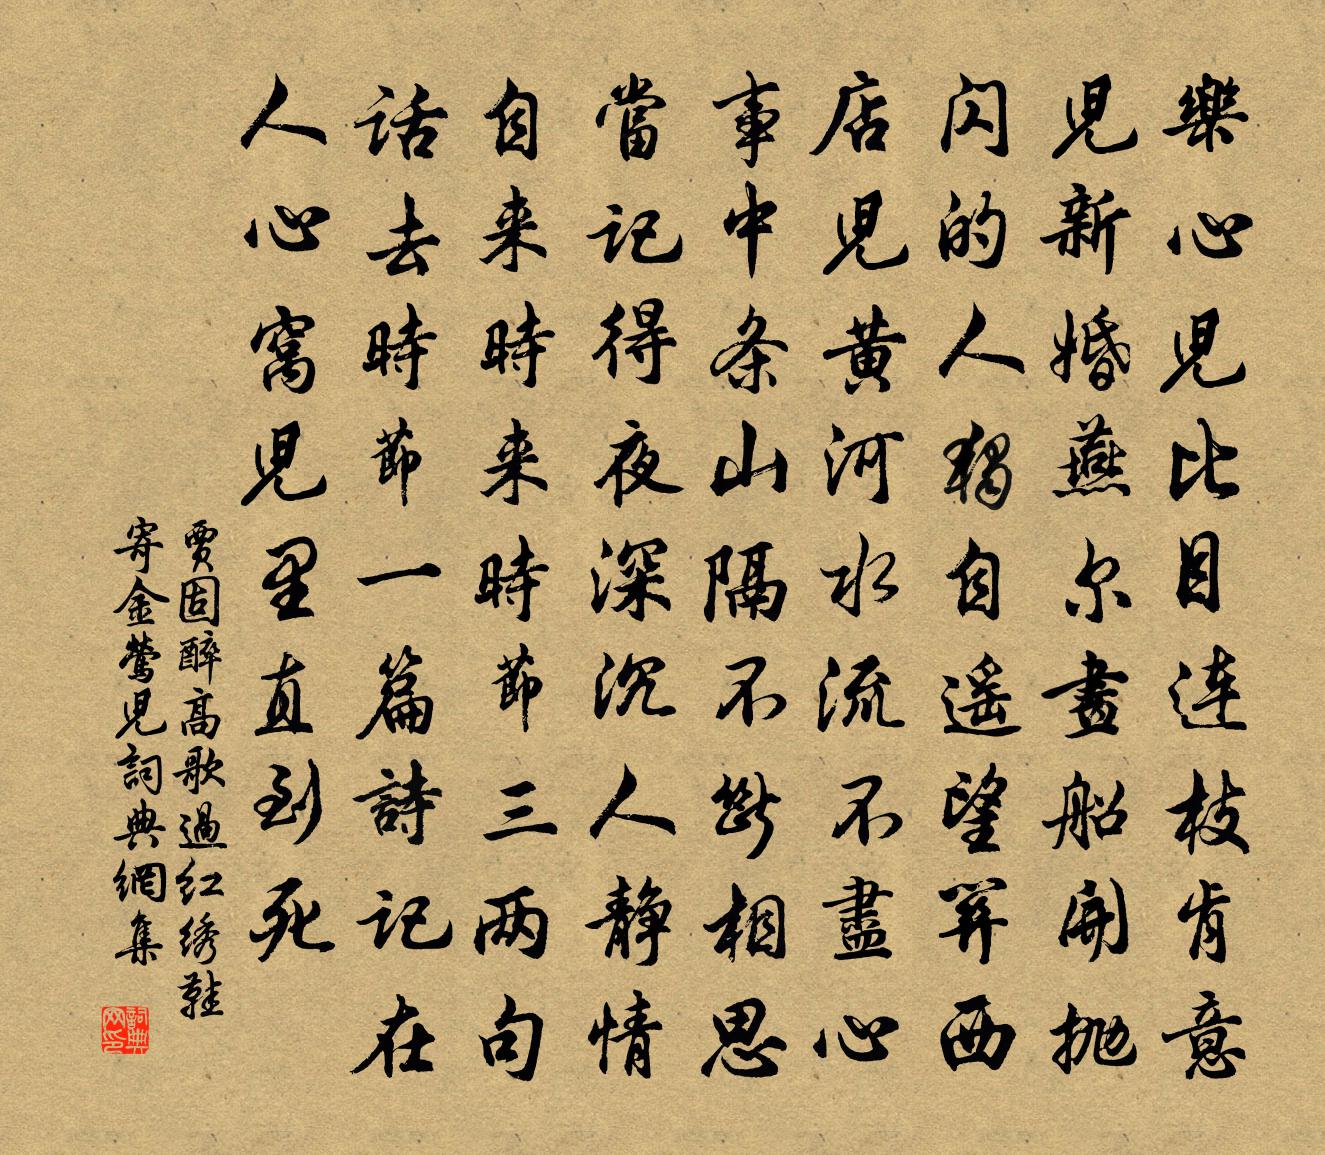 樂心兒比目連枝肯意
兒新婚燕尔畫船開抛
闪的人獨自遥望關西
店兒黄河水流不盡心
事中条山隔不斷相思
當記得夜深沉人静情
自来時来時節三两句
話去時節一篇詩記在
人心窩兒里直到死
賈固醉高歌過红绣鞋
寄金鶯兒詞典網集
詞典网印